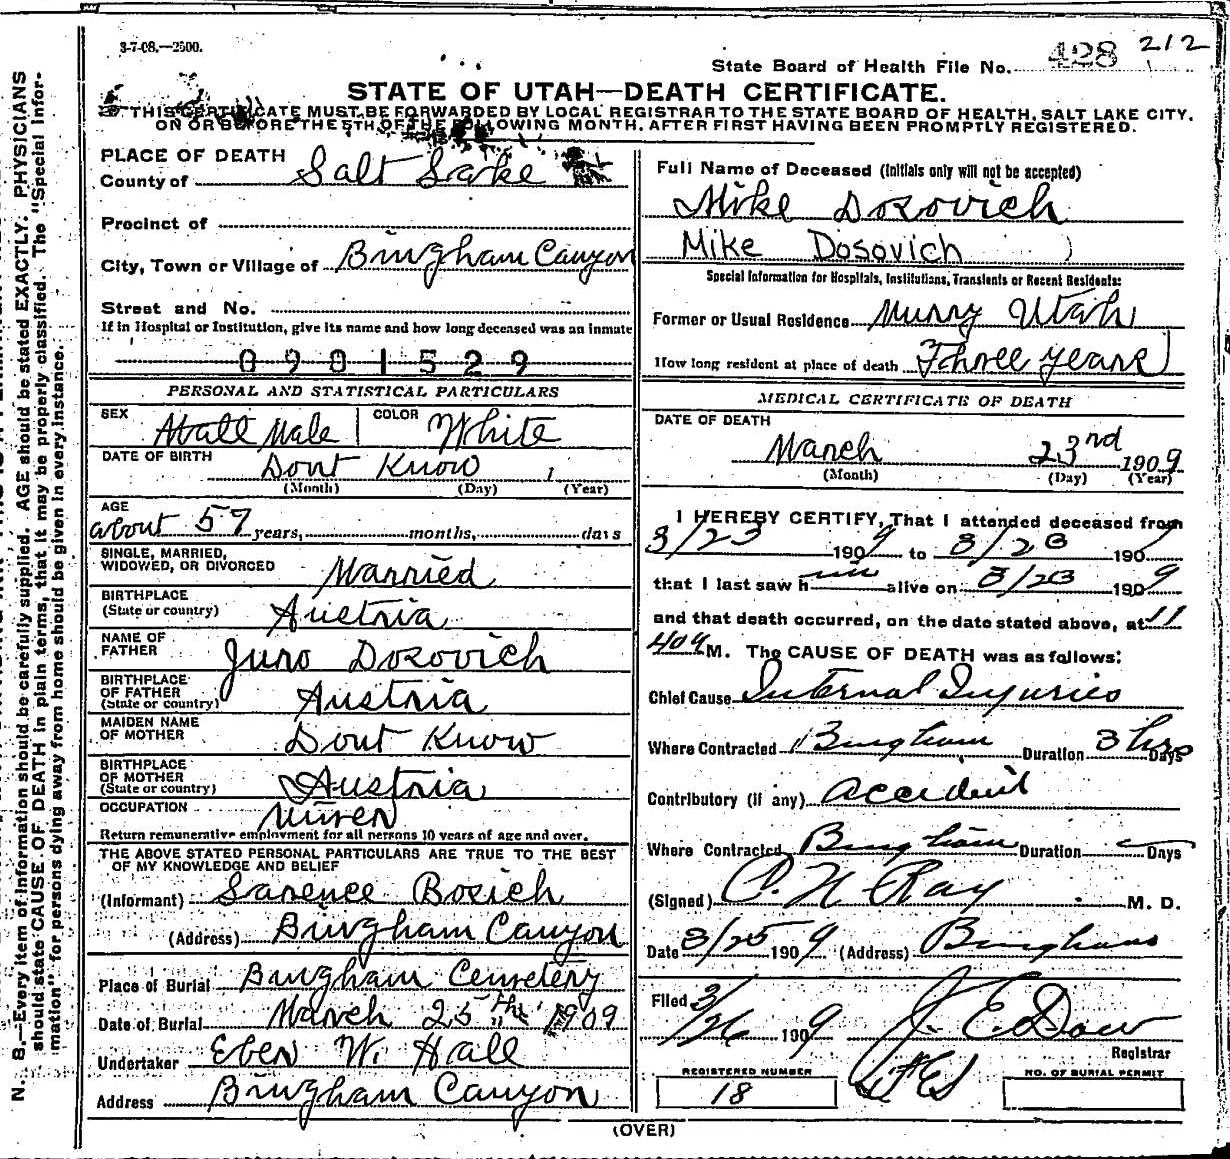 3-7-08.—2500.
State Board of Health File No. 428 212
STATE OF UTAH—DEATH CERTIFICATE.
THIS CERTIFICATE MUST BE FORWARDED BY LOCAL REGISTRAR TO THE STATE BOARD OF HEALTH, SALT LAKE CITY,
ON OR BEFORE THE 5TH OF THE FOLLOWING MONTH, AFTER FIRST HAVING BEEN PROMPTLY REGISTERED.
PLACE OF DEATH
County of Salt Lake
Precinct of
City, Town or Village of Bingham Canyon
Street and No.
If in Hospital or Institution, give its name and how long deceased was an inmate
0901529
PERSONAL AND STATISTICAL PARTICULARS
SEX Male
COLOR White
DATE OF BIRTH Dont Know 1
(Month) (Day) (Year)
AGE
about 57 years, months, days
SINGLE, MARRIED,
WIDOWED, OR DIVORCED Married
BIRTHPLACE
(State or country) Austria
NAME OF
FATHER Juro Dosovich
BIRTHPLACE
OF FATHER
(State or country) Austria
MAIDEN NAME
OF MOTHER Dont Know
BIRTHPLACE
OF MOTHER
(State or country) Austria
OCCUPATION Miner
Return remunerative employment for all persons 10 years of age and over.
THE ABOVE STATED PERSONAL PARTICULARS ARE TRUE TO THE BEST
OF MY KNOWLEDGE AND BELIEF
(Informant) Larence Bosich
(Address) Bingham Canyon
Place of Burial Bingham Cemetery
Date of Burial March 25th 1909
Undertaker Eben W. Hall
Address Bingham Canyon
Full Name of Deceased (Initials only will not be accepted)
Mike Dosovich
Mike Dosovich )
Special Information for Hospitals, Institutions, Transients or Recent Residents:
Former or Usual Residence Murry Utah
How long resident at place of death Three years
MEDICAL CERTIFICATE OF DEATH
DATE OF DEATH
March 23rd 1909
(Month) (Day) (Year)
I HEREBY CERTIFY, That I attended deceased from
3/23 1909 to 3/23 1909
that I last saw him alive on 3/23 1909
and that death occurred, on the date stated above, at 11
40 a M. The CAUSE OF DEATH was as follows:
Chief Cause Internal Injuries
Where Contracted Bingham Duration 3 hrs Days
Contributory (if any) accident
Where Contracted Bingham Duration Days
(Signed) Ray M. D.
Date 3/25 1909 (Address) Bingham
Filed 3/26 1909 J. E. Dow
Registrar
REGISTERED NUMBER
18
NO. OF BURIAL PERMIT
(OVER)
N. B.—Every item of information should be carefully supplied. AGE should be stated EXACTLY. PHYSICIANS
should state CAUSE OF DEATH in plain terms, that it may be properly classified. The "Special Infor-
mation" for persons dying away from home should be given in every instance.